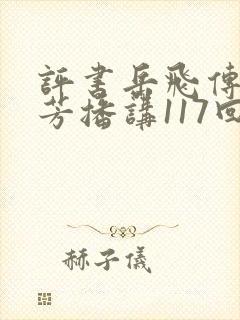 評書岳飛傳
芳播講117回
赫子儀